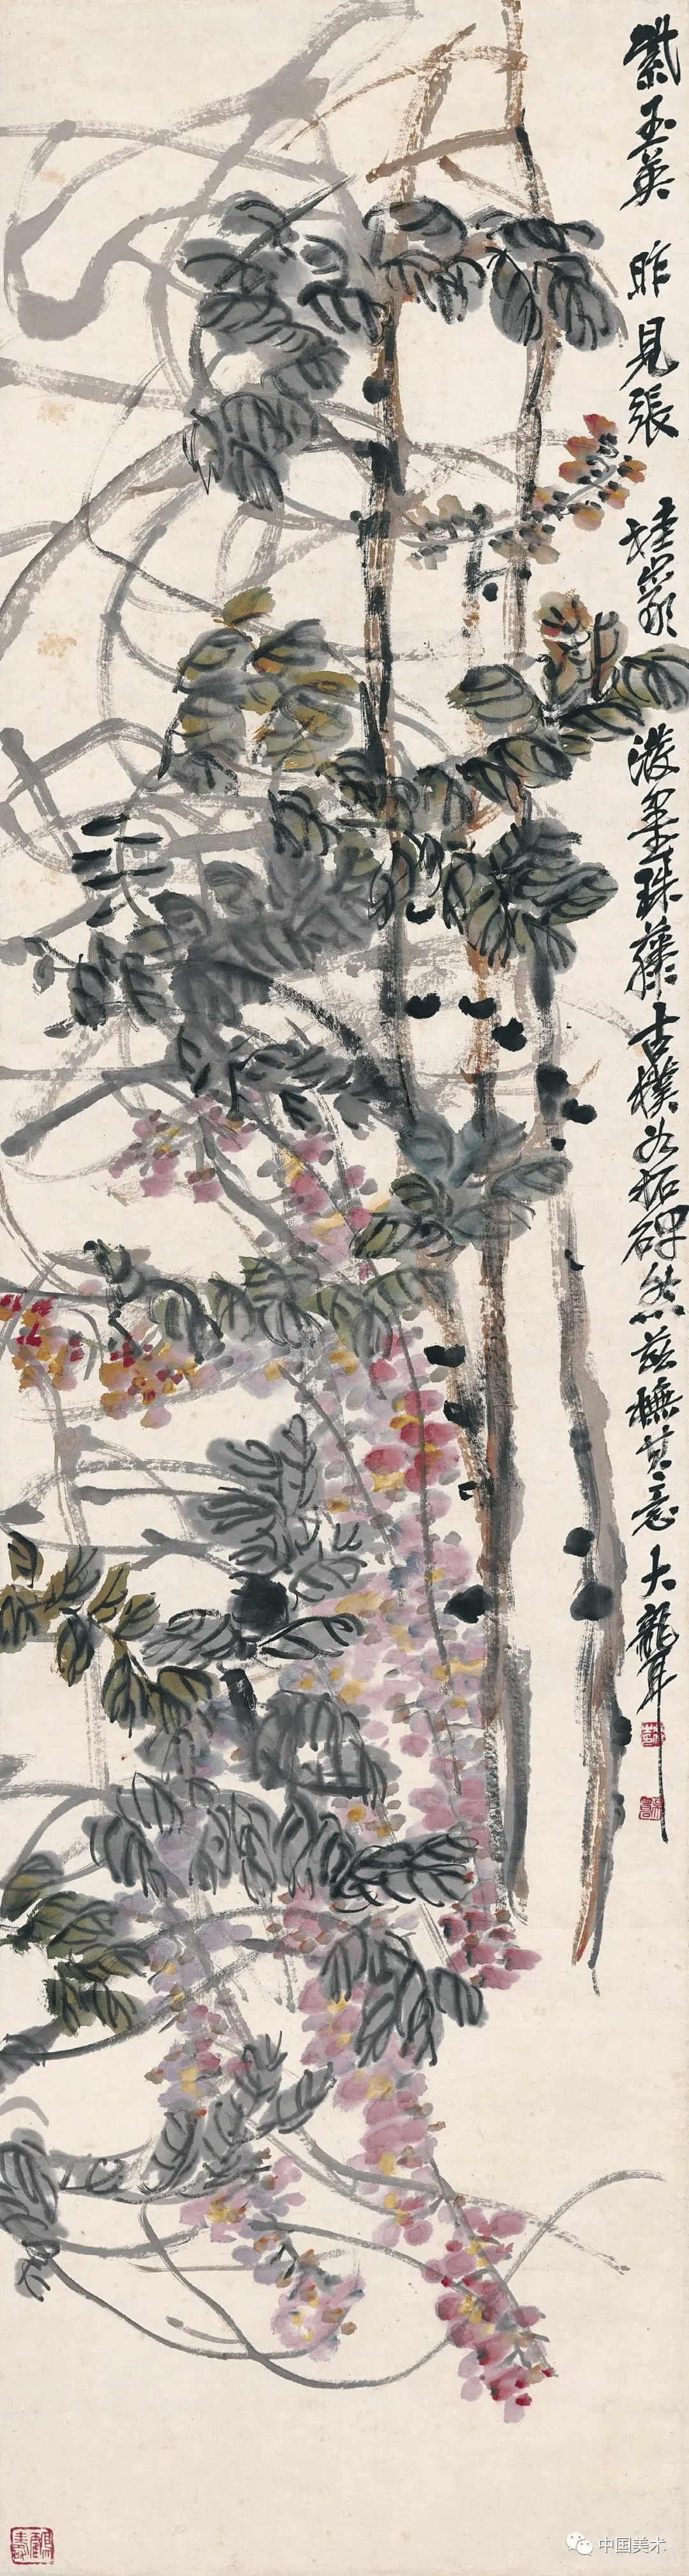 紫玉英 昨見張 孟皋 潑墨珠藤古樸如拓碑然茲橅其意大聾
中国美术